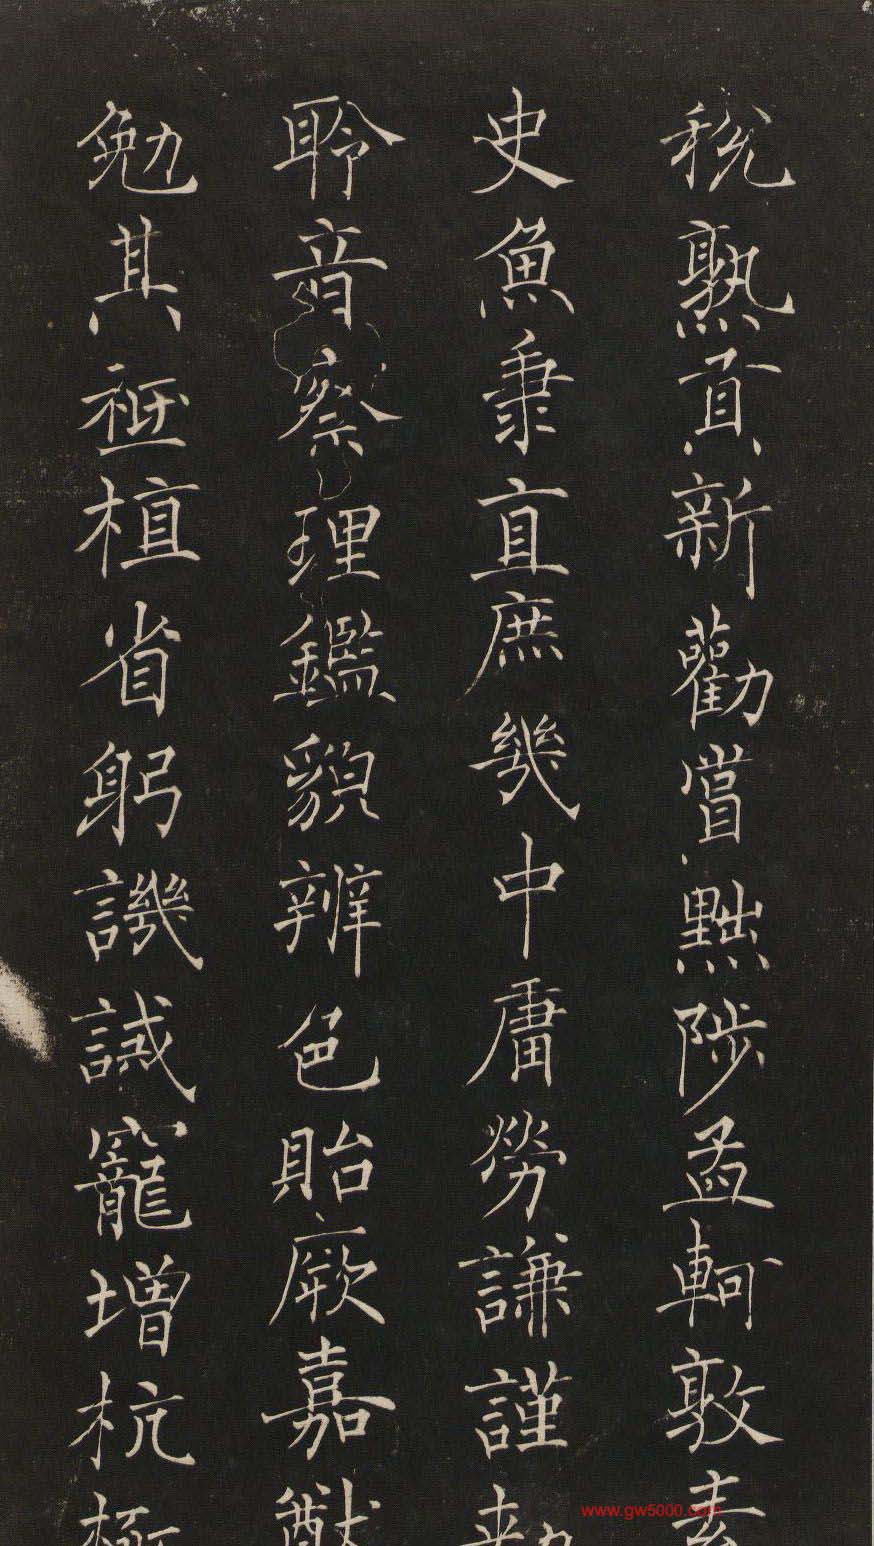 稅熟貢新勸嘗黜陟孟軻敦素
史魚秉直庶幾中庸勞謙謹勅
聆音察理鑑貌辨色貽厥嘉猷
勉其祗植省躬譏誡寵增抗極
www.gw5000.com